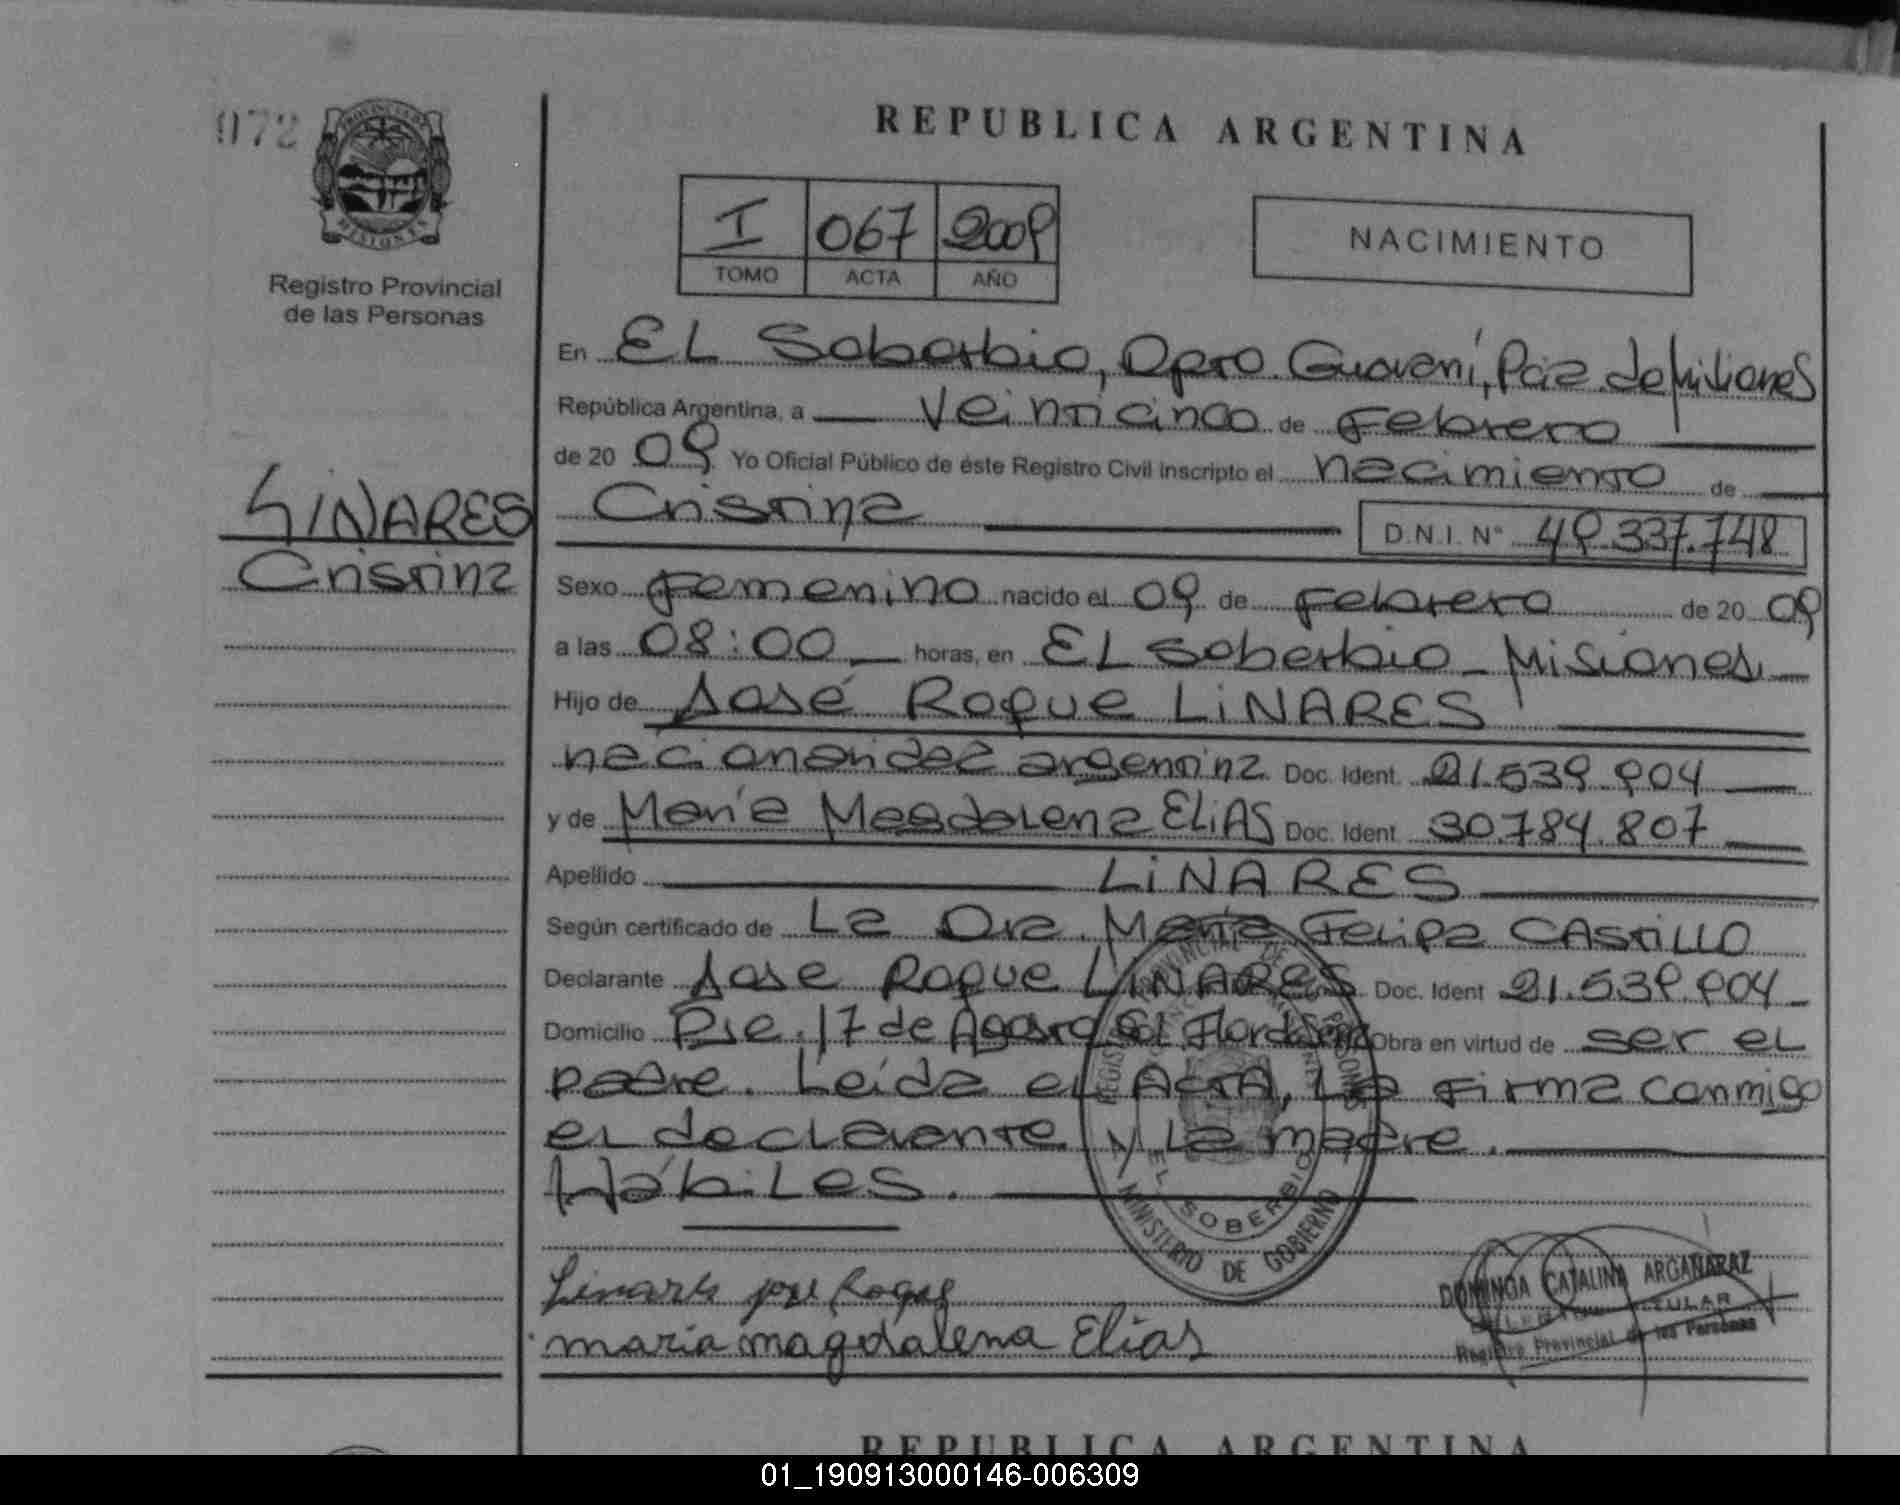 072
PROVINCIA DE
MISIONES
Registro Provincial
de las Personas
LINARES
Cristina
REPUBLICA ARGENTINA
I 067 2009
TOMO ACTA AÑO
NACIMIENTO
En EL Soberbio, Dpto. Guaraní, Pcia. de Misiones
República Argentina, a Veinticinco de Febrero
de 20 09 Yo Oficial Público de éste Registro Civil inscripto el nacimiento de
Cristina D.N.I. N° 49.337.748
Sexo Femenino nacido el 09 de Febrero de 20 09
a las 08:00 horas, en EL Soberbio - Misiones
Hijo de José Roque LINARES
nacionalidad argentina Doc. Ident. 21.539.904
y de María Magdalena ELIAS Doc. Ident. 30.784.807
Apellido LINARES
Según certificado de La Dra. María Felipa CASTILLO
Declarante José Roque LINARES Doc. Ident 21.539.904
Domicilio Pje. 17 de Agosto Obra en virtud de ser el
padre. Leída el ACTA, La Firma conmigo
el declarante y La madre.
Hábiles.
REGIS PROVINCIAL DE PERSONAS
EL SOBERBIO
MINISTERIO DE GOBIERNO
Linares jose Roque
maria magdalena Elias
DOMINGA CATALINA ARGAÑARAZ
TITULAR
Registro Provincial de las Personas
REPUBLICA ARGENTINA
01_190913000146-006309